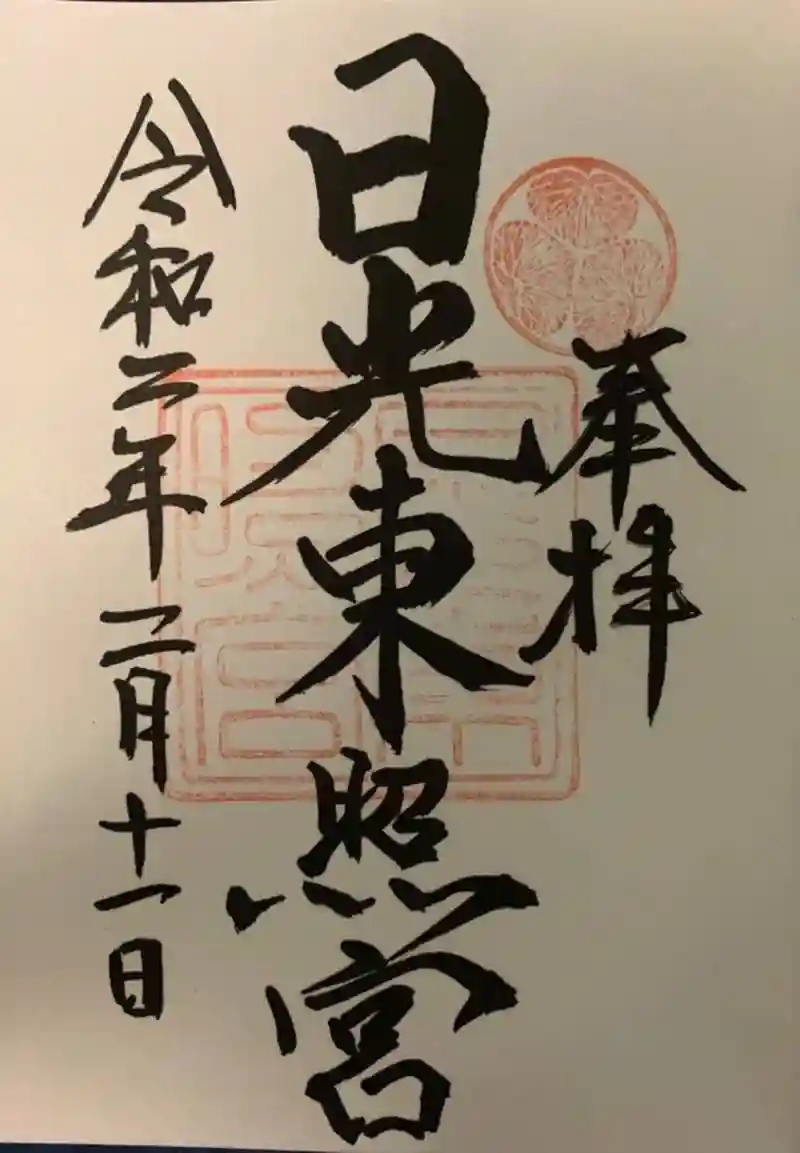 奉拝
日光東照宮
令和二年二月十一日